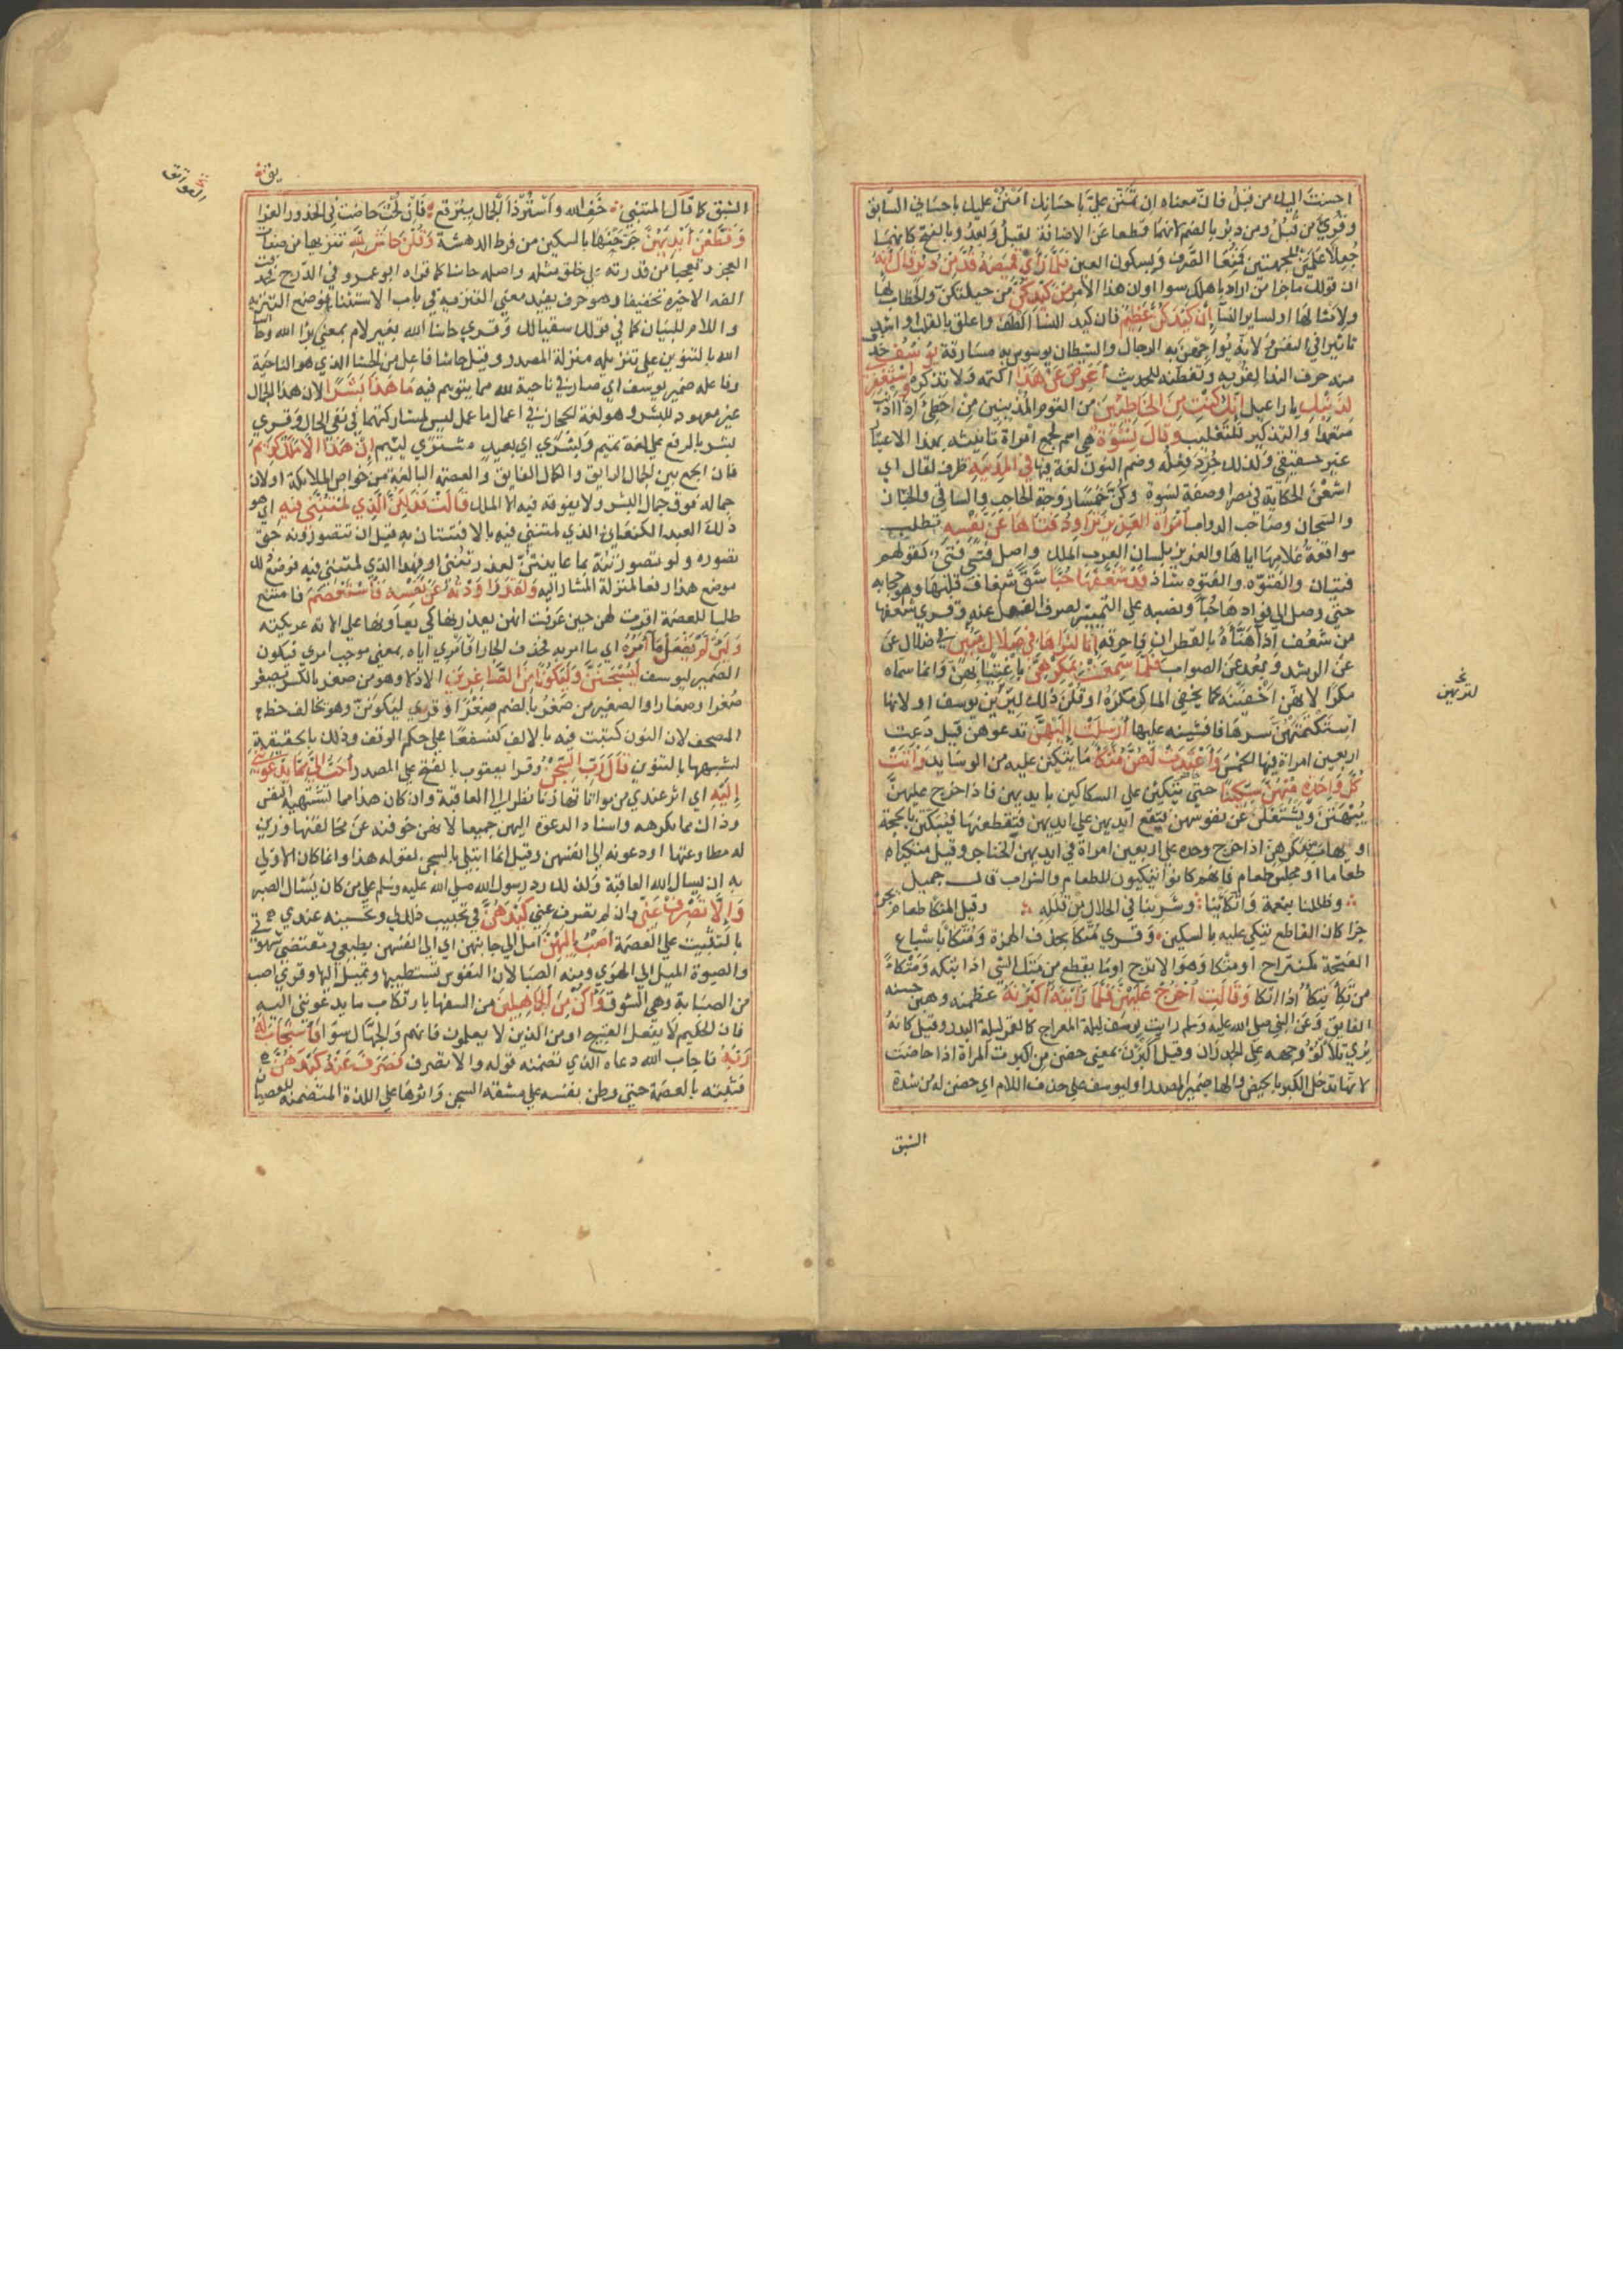 احسنت اليك من قبل فان معناه ان تمنن علي باحسانك امنن عليك باحساني السابق
وقري من قبل ومن دبر بالضم لانهما قطعا عن الاضافة لقبل وبعد وبالفتح كانهما
جعلا علمين للجهتين فمنعا الصرف وبسكون العين فلما راي قميصه قد من دبر قال انه
ان قولك ما جزا من اراد باهلك سوا او ان هذا الامر من كيدكن من حيلتكن والخطاب لها
ولامثالها او لسائر النسا ان كيدكن عظيم فان كيد النسا الطف واعلق بالقلب واشد
تاثيرا في النفس ولانهن يواجهن به الرجال والشيطان يوسوس به مسارقة يوسف حذف
منه حرف الندا لقربه وتفطنه للحديث اعرض عن هذا اكتمه ولا تذكره واستغفري
لذنبك يا راعيل انك كنت من الخاطئين من القوم المذنبين من اخطئ اذا اذنب
متعمدا والتذكير للتغليب وقال نسوة هي اسم لجمع امراة تانيثه بهذا الاعتبار
غير حقيقي ولذلك جرد فعله وضم النون لغة فيها في المدينة ظرف لقال اي
اشعن الحكاية في مصر او صفة لنسوة وكن خمسا زوجة الحاجب والساقي والخباز
والسجان وصاحب الدواب امراة العزيز تراود فتاها عن نفسه تطلب
مواقعة غلامها اياها والعزيز بلسان العرب الملك واصل فتي فتي كقولهم
فتيان والفتوة والفتوه شاذ قد شغفها حبا شق شغاف قلبها وهو حجابه
حتي وصل الي فوادها حبا ونصبه علي التمييز لصرف الفعل عنه وقري شعفها
من شعف اذا هناه بالقطران فاحرقه انا لنراها في ضلال مبين في ضلال عن
عن الرشد وبعد عن الصواب فلما سمعت بمكرهن باغتيابهن وانما سماه
مكرا لانهن اخفينه كما يخفي الماكر مكره او قلن ذلك ليرين يوسف او لانها
استكتمتهن سرها فافشينه عليها ارسلت اليهن تدعوهن قيل دعت
اربعين امراة فيها الخمس واعتدت لهن متكا ما يتكين عليه من الوسايد واتت
كل واحدة منهن سكينا حتي يتكين علي السكاكين بايديهن فاذا خرج عليهن
يبهتن ويشتغلن عن نفوسهن فيقع ايديهن علي ايديهن فيقطعنها فيبكتن بالحجة
او يهاب مكرهن اذا خرج وحده علي اربعين امراة في ايديهن الخناجر وقيل متكا
طعاما او مجلس طعام فانهم كانوا يتكيون للطعام والشراب قال جميل
فظللنا بنعمة واتكانا وشربنا الحلال من قلله وقيل المتكا طعام يحز
حزا كان القاطع يتكي عليه بالسكين وقري متكا بحذف الهمزة ومتكا باشباع
الفتحة كمنتزاح ومتكا وهو الاترج او ما يقطع من متك الشي اذا بتكه ومتكا
من تكا يتكا اذا اتكا وقالت اخرج عليهن فلما راينه اكبرنه عظمنه وهبن حسنه
الفايق وعن النبي صلي الله عليه وسلم رايت يوسف ليلة المعراج كالقمر ليلة البدر وقيل كان
يري تلالؤ وجهه علي الجدران وقيل اكبرن بمعني حضن من اكبرت المراة اذا حاضت
لانها تدخل الكبر بالحيض والها ضمير المصدر او ليوسف علي حذف اللام اي حضن له من شدة
الشبق
لترين
الشبق كما قال المتنبي خف الله واستر ذا الجمال ببرقع فان لحت حاضت في الخدور العواتق
وقطعن ايديهن جرحنها بالسكين من فرط الدهشة وقلن حاش لله تنزيها من صفات
العجز وتعجبا من قدرته علي خلق مثله واصله حاشا كما قراه ابو عمرو في الدرج فحذفت
الفه الاخيره تخفيفا وهو حرف يفيد معني التنزيه في باب الاستثنا فوضع موضع التنزيه
واللام للبيان كما في قولك سقيا لك وقري حاشا الله بغير لام بمعني براة الله وحاشا
الله بالتنوين علي تنزيله منزلة المصدر وقيل حاشا فاعل من الحشا الذي هو الناحية
وفاعله ضمير يوسف اي صار في ناحية لله مما يتوهم فيه ما هذا بشرا لان هذا الجمال
غير معهود للبشر وهو لغة الحجاز في اعمال ما عمل ليس لمشاركتهما في نفي الحال وقري
بشر بالرفع علي لغة تميم وبشري اي بعبد مشتري لئيم ان هذا الا ملك كريم
فان الجمع بين الجمال الرايق والكمال الفايق والعصمة البالغة من خواص الملايكة او لان
جماله فوق جمال البشر ولا يفوقه فيه الا الملك قالت فذلكن الذي لمتنني فيه اي هو
ذلك العبد الكنعاني الذي لمتنني فيه بالافتتان به قبل ان تتصورنه حق
تصوره ولو تصورتنه بما عاينتن لعذرتنني او فهذا الذي لمتنني فيه فوضع ذلك
موضع هذا رفعا لمنزلة المشار اليه ولقد راودته عن نفسه فاستعصم فامتنع
طلبا للعصمة اقرت لهن حين عرفت انهن يعذرنها كي يعاونها علي الانة عريكته
ولين لم يفعل ما امره اي ما امر به فحذف الجار او امري اياه بمعني موجب امري فيكون
الضمير ليوسف ليسجنن وليكونا من الصاغرين الاذلا وهو من صغر بالكسر يصغر
صغرا وصغارا والصغير من صغر بالضم صغرا وقري ليكونن وهو يخالف خط
المصحف لان النون كتبت فيه بالالف كنسفعا علي حكم الوقف وذلك بالخفيفة
لشبهها بالتنوين قال رب السجن وقرا يعقوب بالفتح علي المصدر احب الي مما يدعونني
اليه اي اثر عندي من مواتاتها زنا نظرا الي العاقبة وان كان هذا مما تشتهيه النفس
وذاك مما تكرهه واسناد الدعوة اليهن جميعا لانهن خوفنه عن مخالفتها وزين
له مطاوعتها او دعونه الي انفسهن وقيل انما ابتلي بالسجن لقوله هذا وانما كان الاولي
به ان يسال الله العافية ولذلك رد رسول الله صلي الله عليه وسلم علي من كان يسال الصبر
والا تصرف عني وان لم تصرف عني كيدهن في تحبيب ذلك الي وتحسينه عندي
بالتثبيت علي العصمة اصب اليهن امل الي جانبهن او الي انفسهن بطبعي ومقتضي شهوتي
والصبوة الميل الي الهوي ومنه الصبا لان النفوس تستطيبها وتميل اليها وقري اصب
من الصبابة وهي الشوق واكن من الجاهلين من السفها بارتكاب ما يدعونني اليه
فان الحكيم لا يفعل القبيح او من الذين لا يعملون فانهم والجهال سوا فاستجاب له
ربه فاجاب الله دعاه الذي تضمنه قوله والا تصرف فصرف عنه كيدهن
فثبته بالعصمة حتي وطن نفسه علي مشقة السجن واثرها علي اللذة المتضمنة للعصيان